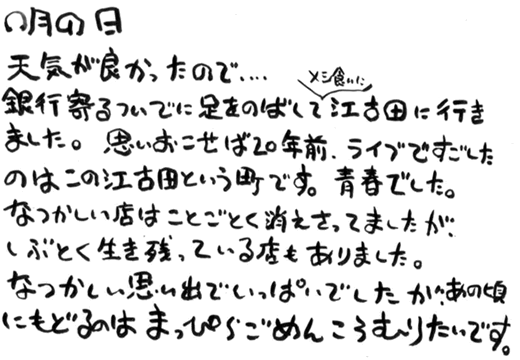 ○月の日
天気が良かったので‥‥
メシ食いに
銀行寄るついでに足をのばして江古田に行き
ました。思いおこせば20年前、ライブですごした
のはこの江古田という町です。青春でした。
なつかしい店はことごとく消えさってましたが、
しぶとく生き残っている店もありました。
なつかしい思い出でいっぱいでしたが、あの頃
にもどるのはまっぴらごめんこうむりたいです。